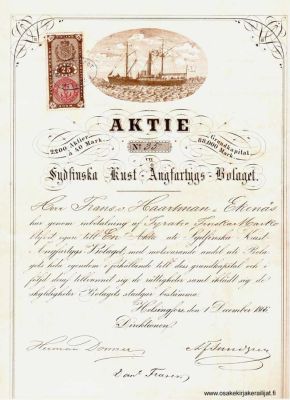 25
AKTIE
2200 Aktier
à 40 Mark
No
Grundkapital
88,000 Mark
uti
Sydfinska Kust-Ångfartygs-Bolaget.
Herr Frans v Haartman i Ekenäs
har genom inbetalning af Fyratio Finska Mark
blifvit egare till En Aktie uti Sydfinska Kust
Ångfartygs Bolaget, med motsvarande andel uti Bola-
gets hela egendom i förhållande till dess grundkapital och
följd deraf tillkommer såväl de rättigheter samt åtlidt sig de
skyldigheter Bolagets stadgar bestämma.
Helsingfors, den 1 December 186
Direktionen:
Herman Donner
www.osakekirjakerailijat.fi